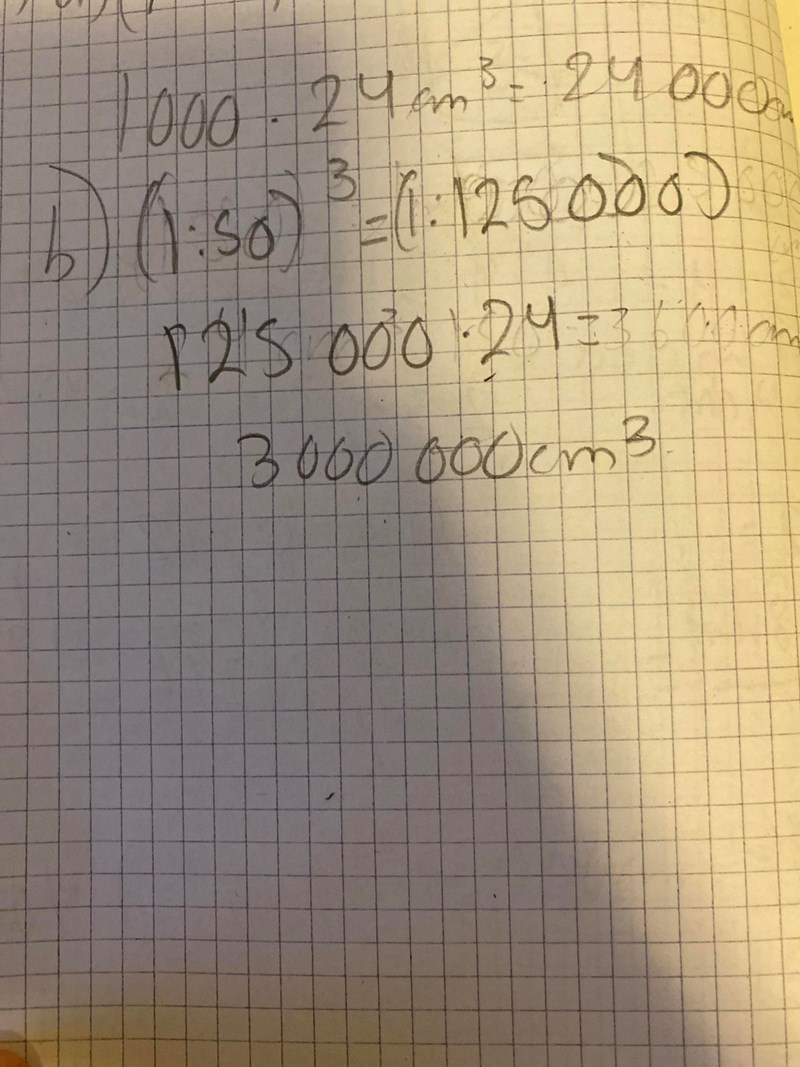 1000 · 24 cm³ = 24 000
b) (1:50)³ = (1:125 000)
125 000 · 24 =
3 000 000 cm³